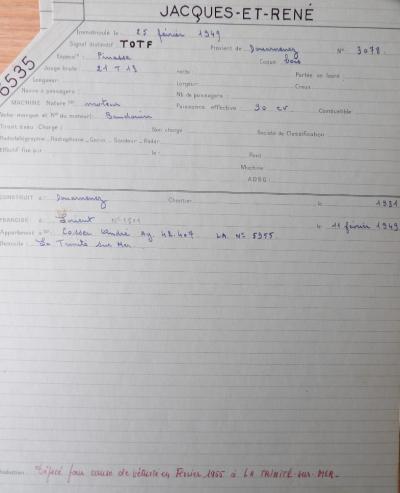 JACQUES-ET-RENÉ
6535
Immatriculé le : 25 février 1949
Signal distinctif TOTF Provient de Douarnenez N° 3078.
Espèce Pinasse Coque bois
Jauge brute : 21 T 13 nette : Portée en lourd :
Longueur : Largeur : Creux :
Navire à passagers : Nb. de passagers :
MACHINE Nature moteur Puissance effective 90 cv Combustible :
Baudouin
Tirant d'eau : Chargé : Non chargé : Société de Classification :
Radiotélégraphie - Radiophonie - Gonio - Sondeur - Radar
Effectif fixé par : le : Pont :
Machine :
ADSG :
CONSTRUIT à : Douarnenez Chantier : le 1931
FRANCISÉ à : Lorient N° le 11 février 1949
Appartenant à Cossec André Ag. 42.407 LA. N° 5955
Domicile : La Trinité sur Mer
Dépecé pour cause de vétusté en Février 1955 à LA TRINITÉ-sur-MER.